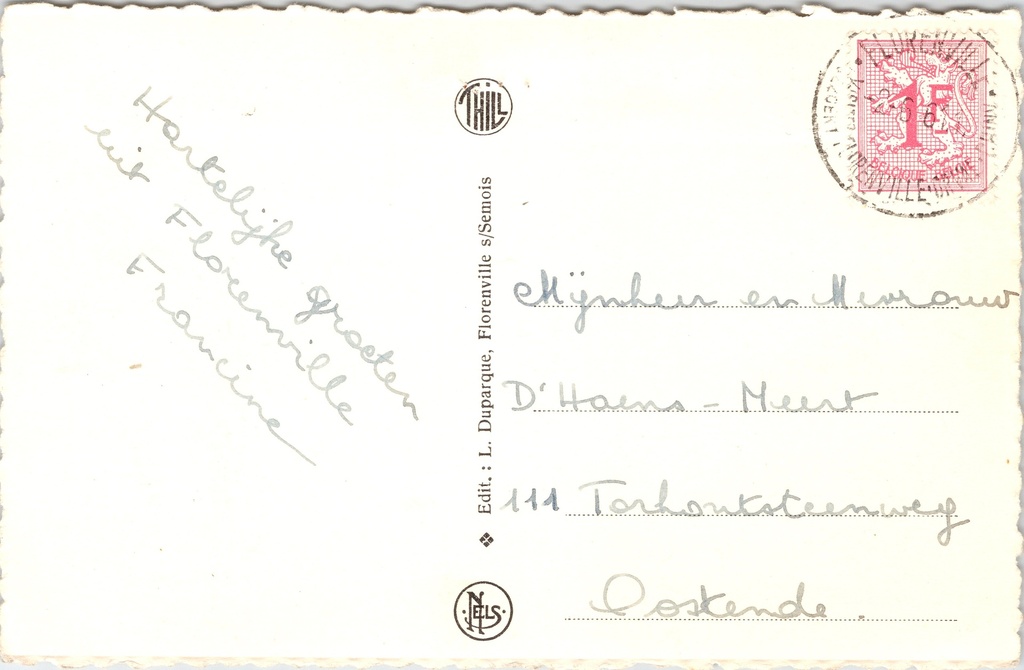 Hartelijke groeten
uit Florenville
Francine
THILL
Edit. : L. Duparque, Florenville s/Semois
NELS
FLORENVILLE
-2-6-6
1F
BELGIQUE BELGIE
FLORENVILLE
Mijnheer en Mevrouw
D'Haens - Meert
111 Torhoutsteenweg
Oostende.